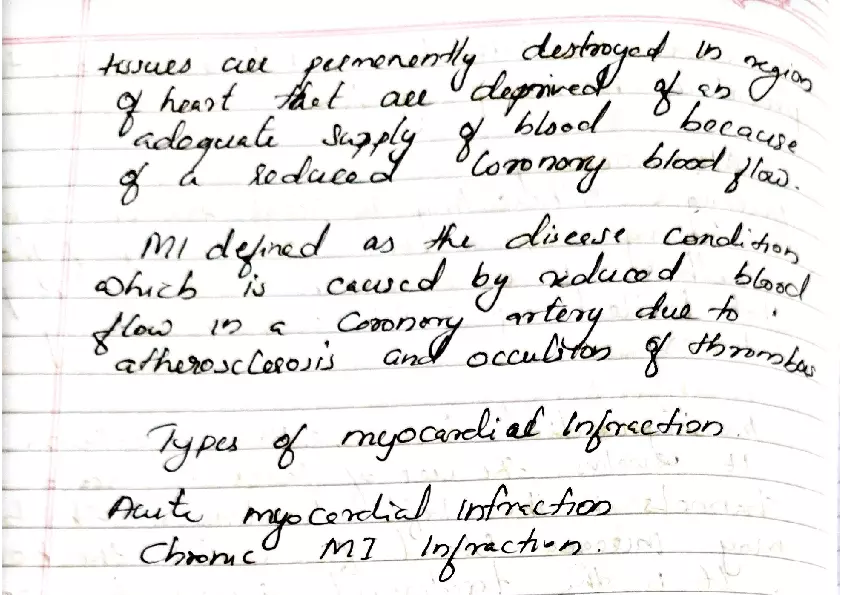 tissues are permenently destroyed in region
of heart that are deprived of an
adequate supply of blood because
of a reduced coronory blood flow.
MI defined as the disease condition
which is caused by reduced blood
flow in a coronory artery due to
atherosclerosis and occuliton of thrombus
Types of myocardial Infraction.
Acute myocordial infraction
Chronic MI Infraction.